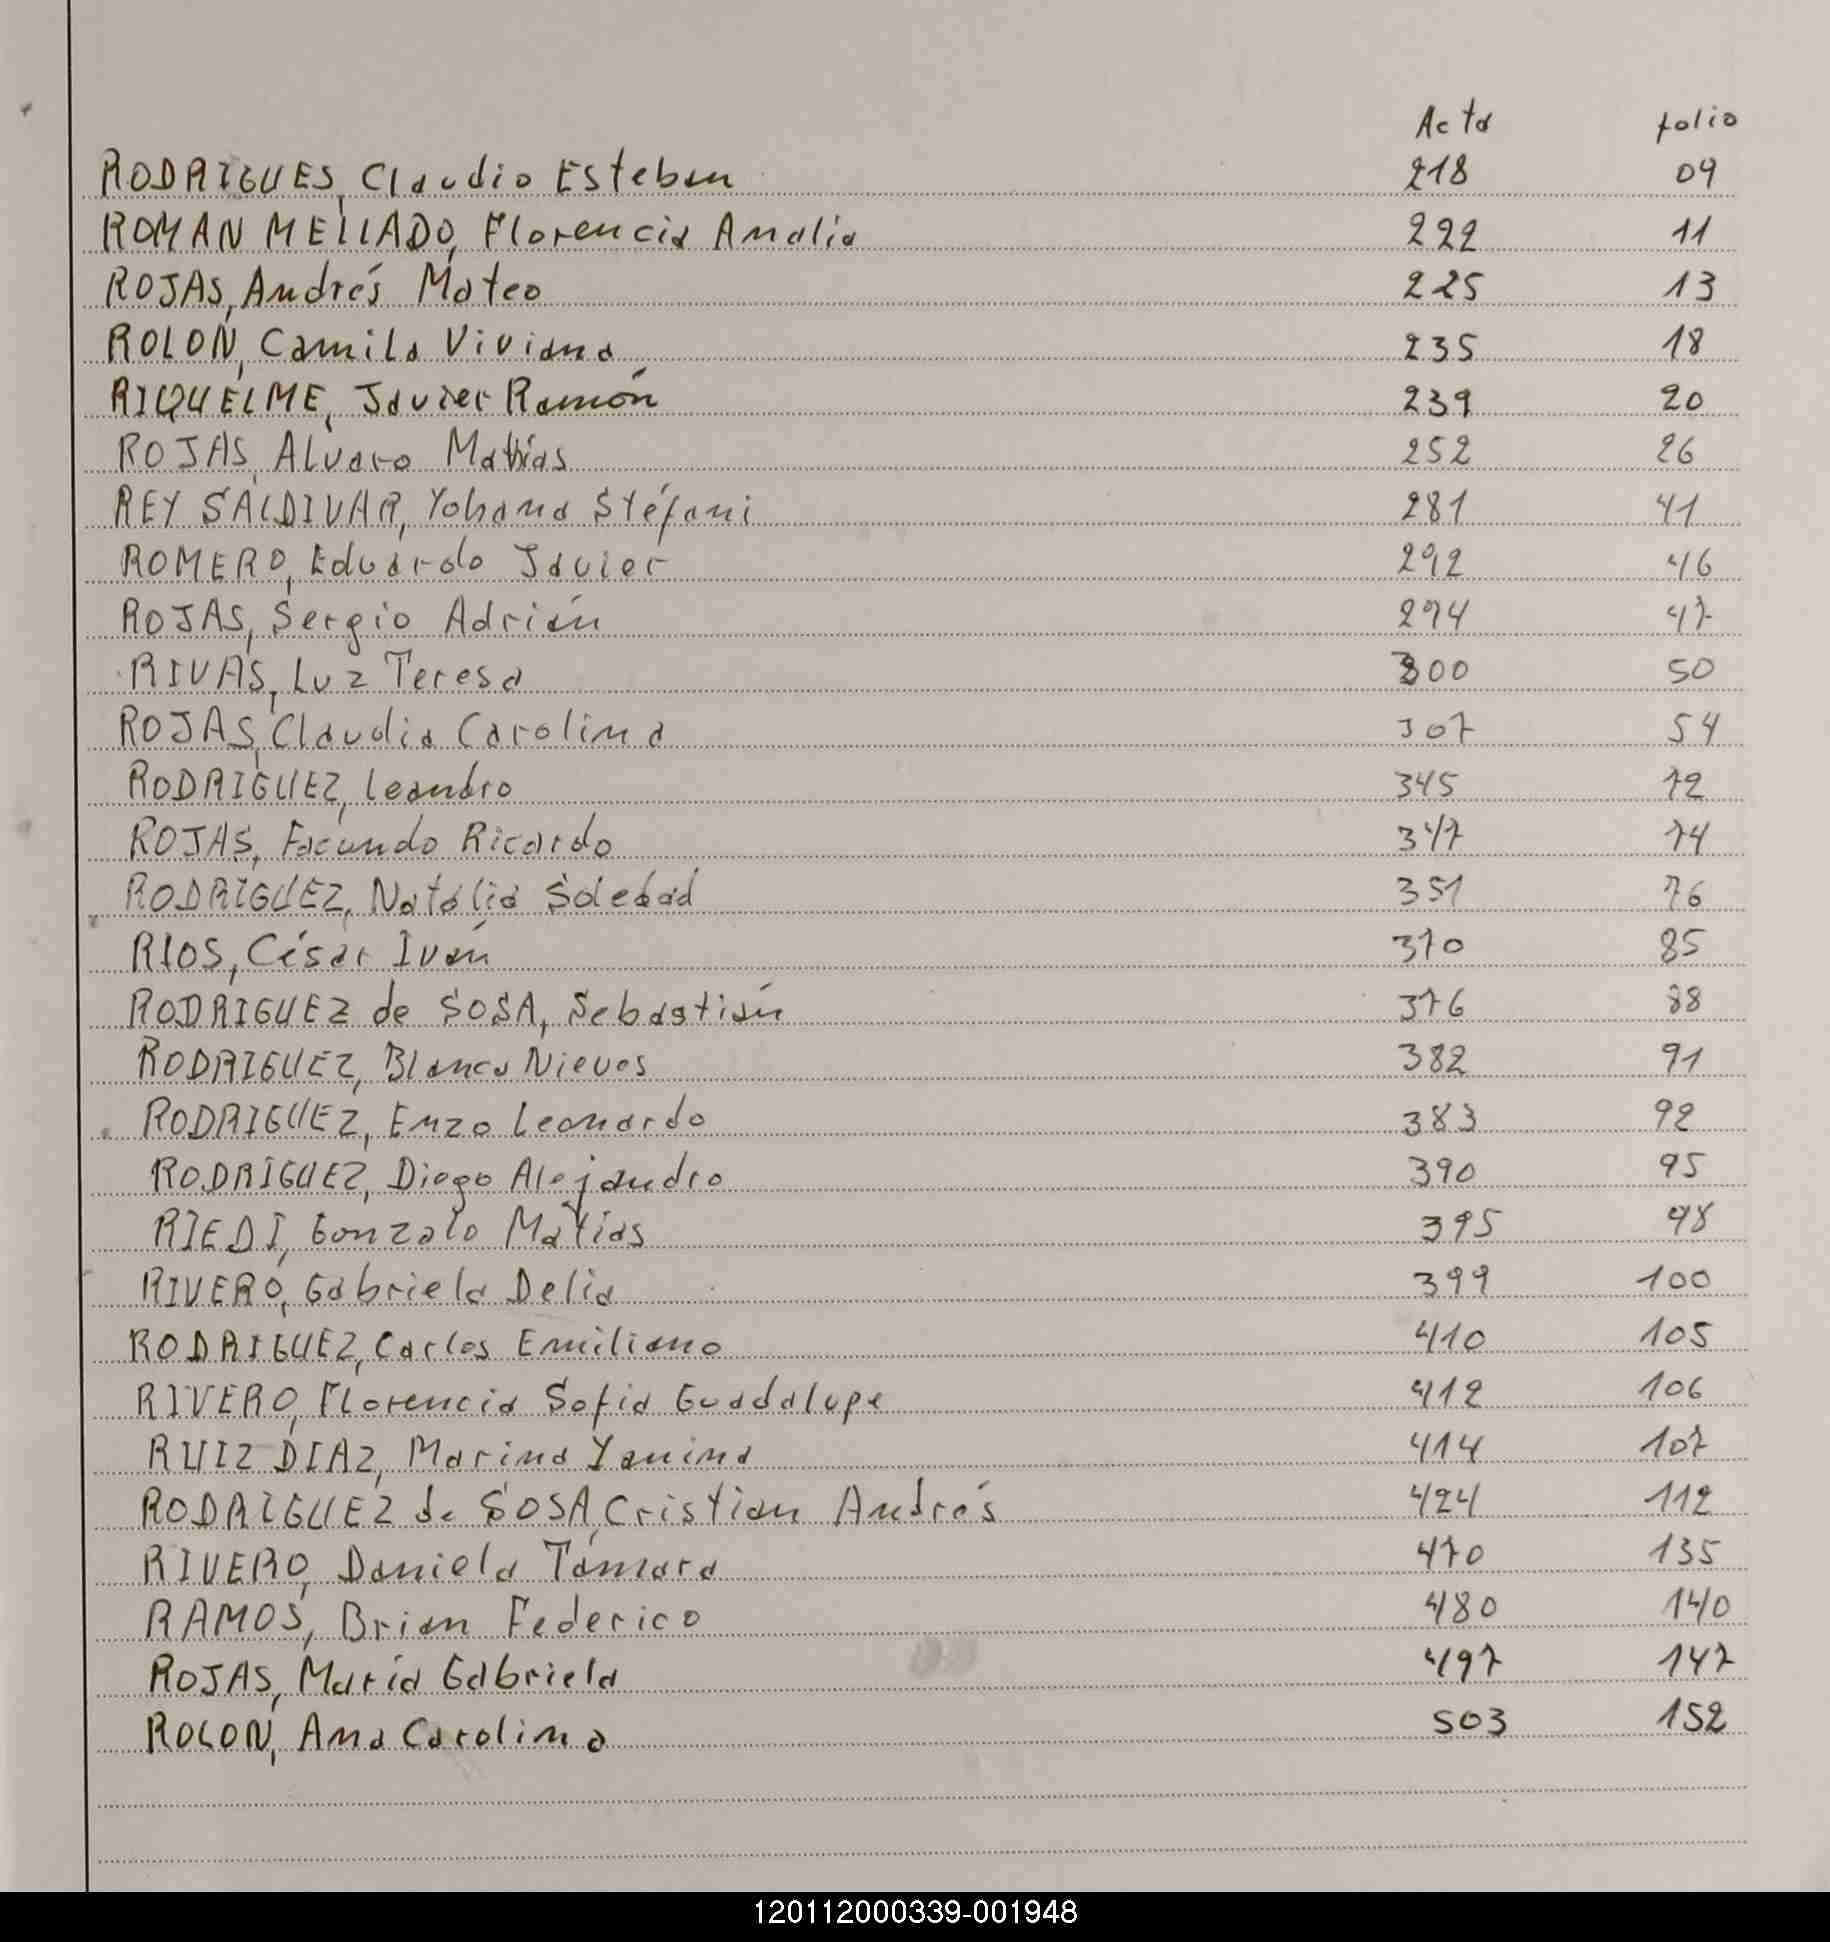 Acta folio
RODRIGUES, Claudio Esteban 218 09
ROMAN MELLADO, Florencia Analía 222 11
ROJAS, Andrés Mateo 225 13
ROLON, Camila Viviana 235 18
RIQUELME, Javier Ramón 239 20
ROJAS, Alvaro Matías 252 26
REY SALDIVAR, Yohana Stéfani 281 41
ROMERO, Eduardo Javier 292 46
ROJAS, Sergio Adrián 294 47
RIVAS, Luz Teresa 300 50
ROJAS, Claudia Carolina 307 54
RODRIGUEZ, Leandro 345 72
ROJAS, Facundo Ricardo 347 74
RODRIGUEZ, Natalia Soledad 351 76
RIOS, César Iván 370 85
RODRIGUEZ de SOSA, Sebastián 376 88
RODRIGUEZ, Blanca Nieves 382 91
RODRIGUEZ, Enzo Leonardo 383 92
RODRIGUEZ, Diego Alejandro 390 95
RIEDI, Gonzalo Matías 395 98
RIVERO, Gabriela Delia 399 100
RODRIGUEZ, Carlos Emiliano 410 105
RIVERO, Florencia Sofia Guadalupe 412 106
RUIZ DIAZ, Marina Yanina 414 107
RODRIGUEZ de SOSA, Cristian Andrés 424 112
RIVERO, Daniela Támara 470 135
RAMOS, Brian Federico 480 140
ROJAS, María Gabriela 497 147
ROLON, Ana Carolina 503 152
120112000339-001948